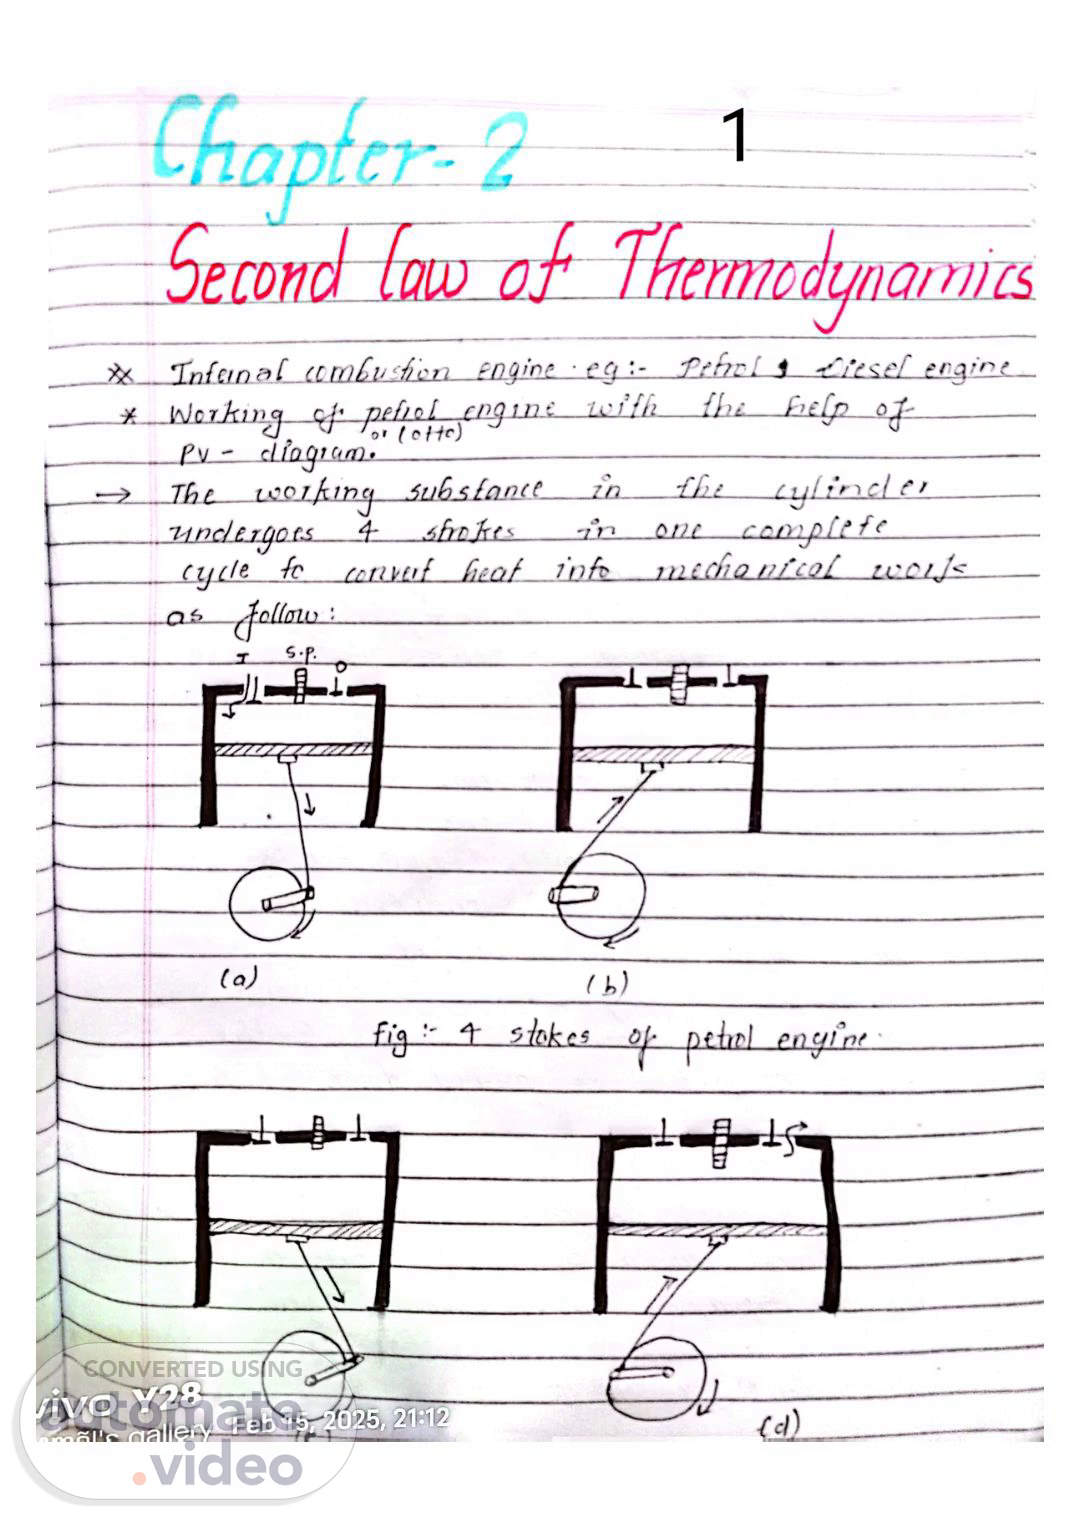 Chapter-2
1
Second law of Thermodynamics
** Internal combustion engine. eg:- Petrol, Diesel engine
* Working of petrol engine with the help of
or (otto)
PV - diagram.
→ The working substance in the cylinder
undergoes 4 strokes in one complete
cycle to convert heat into mechanical work
as follow:
I S.P. O
(a) (b)
fig :- 4 stokes of petrol engine.
CONVERTED USING
vivo Y28
automate
Feb 15, 2025, 21:12
gallery
.video
(d)